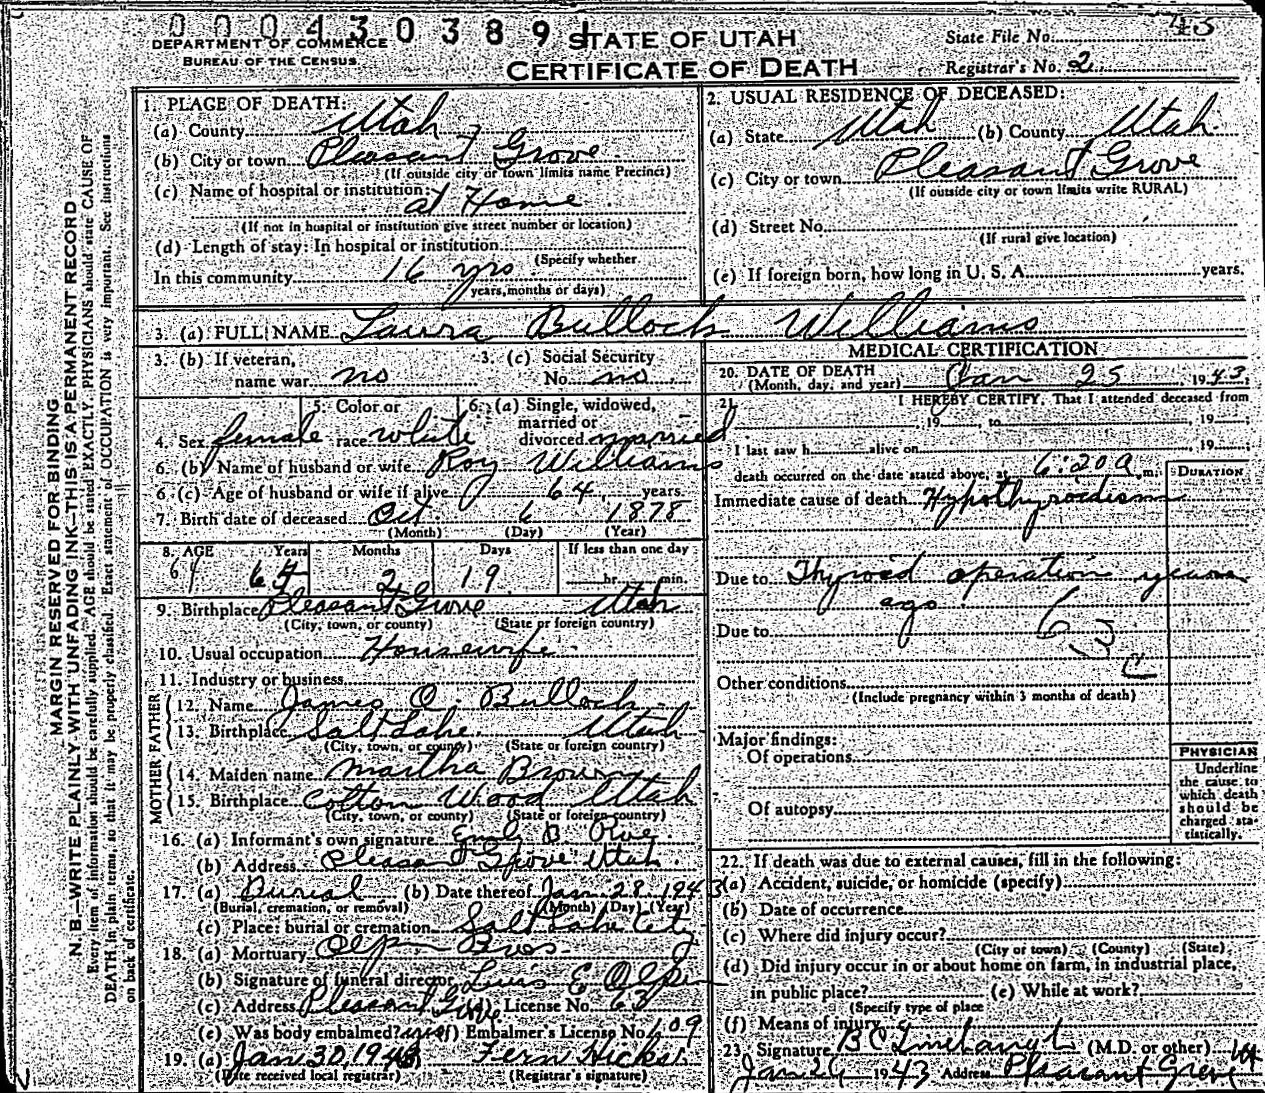 0 0 0 4 3 0 3 8 9 1
STATE OF UTAH
DEPARTMENT OF COMMERCE
BUREAU OF THE CENSUS
CERTIFICATE OF DEATH
State File No. 45
Registrar's No. 2
MARGIN RESERVED FOR BINDING
N. B.—WRITE PLAINLY WITH UNFADING INK—THIS IS A PERMANENT RECORD
Every item of information should be carefully supplied. AGE should be stated EXACTLY. PHYSICIANS should state CAUSE OF
DEATH in plain terms, so that it may be properly classified. Exact statement of OCCUPATION is very important. See instructions
on back of certificate.
1. PLACE OF DEATH:
(a) County Utah
(b) City or town Pleasant Grove
(If outside city or town limits name Precinct)
(c) Name of hospital or institution:
at Home
(If not in hospital or institution give street number or location)
(d) Length of stay: In hospital or institution
(Specify whether
In this community 16 yrs
years, months or days)
2. USUAL RESIDENCE OF DECEASED:
(a) State Utah (b) County Utah
(c) City or town Pleasant Grove
(If outside city or town limits write RURAL)
(d) Street No.
(If rural give location)
(e) If foreign born, how long in U. S. A. years.
3. (a) FULL NAME Laura Bullock Williams
3. (b) If veteran, name war no
3. (c) Social Security No. no
4. Sex female
5. Color or race white
6. (a) Single, widowed, married or divorced married
6. (b) Name of husband or wife Roy Williams
6. (c) Age of husband or wife if alive 64 years.
7. Birth date of deceased Oct 6 1878
(Month) (Day) (Year)
8. AGE Years Months Days If less than one day
64 64 2 19 hr. min.
9. Birthplace Pleasant Grove Utah
(City, town, or county) (State or foreign country)
10. Usual occupation Housewife
11. Industry or business
FATHER
12. Name James O. Bullock
13. Birthplace Salt Lake Utah
(City, town, or county) (State or foreign country)
MOTHER
14. Maiden name Martha Brown
15. Birthplace Cotton Wood Utah
(City, town, or county) (State or foreign country)
16. (a) Informant's own signature Emly B.
(b) Address Pleasant Grove Utah
17. (a) Burial (b) Date thereof Jan 28 1943
(Burial, cremation, or removal) (Month) (Day) (Year)
(c) Place: burial or cremation Salt Lake City
18. (a) Mortuary Olpin Bros
(b) Signature of funeral director Louis E Olpin
(c) Address Pleasant Grove (d) License No. 63
(e) Was body embalmed? yes (f) Embalmer's License No. 609
19. (a) Jan 30 1943 Fern Hicks
(Date received local registrar) (Registrar's signature)
MEDICAL CERTIFICATION
20. DATE OF DEATH
(Month, day, and year) Jan 25, 1943
21. I HEREBY CERTIFY, That I attended deceased from
, 19 , to , 19
I last saw h alive on , 19
death occurred on the date stated above, at 6:20 a. m.
DURATION
Immediate cause of death Hypothyroidism
Due to Thyroid operation years
ago
Due to
63 c
Other conditions
(Include pregnancy within 3 months of death)
Major findings:
Of operations
Of autopsy
PHYSICIAN
Underline
the cause to
which death
should be
charged sta-
tistically.
22. If death was due to external causes, fill in the following:
(a) Accident, suicide, or homicide (specify)
(b) Date of occurrence
(c) Where did injury occur?
(City or town) (County) (State)
(d) Did injury occur in or about home on farm, in industrial place,
in public place? (e) While at work?
(Specify type of place
(f) Means of injury
23. Signature B C Linebaugh (M.D. or other)
Jan 26 1943 Address Pleasant Grove